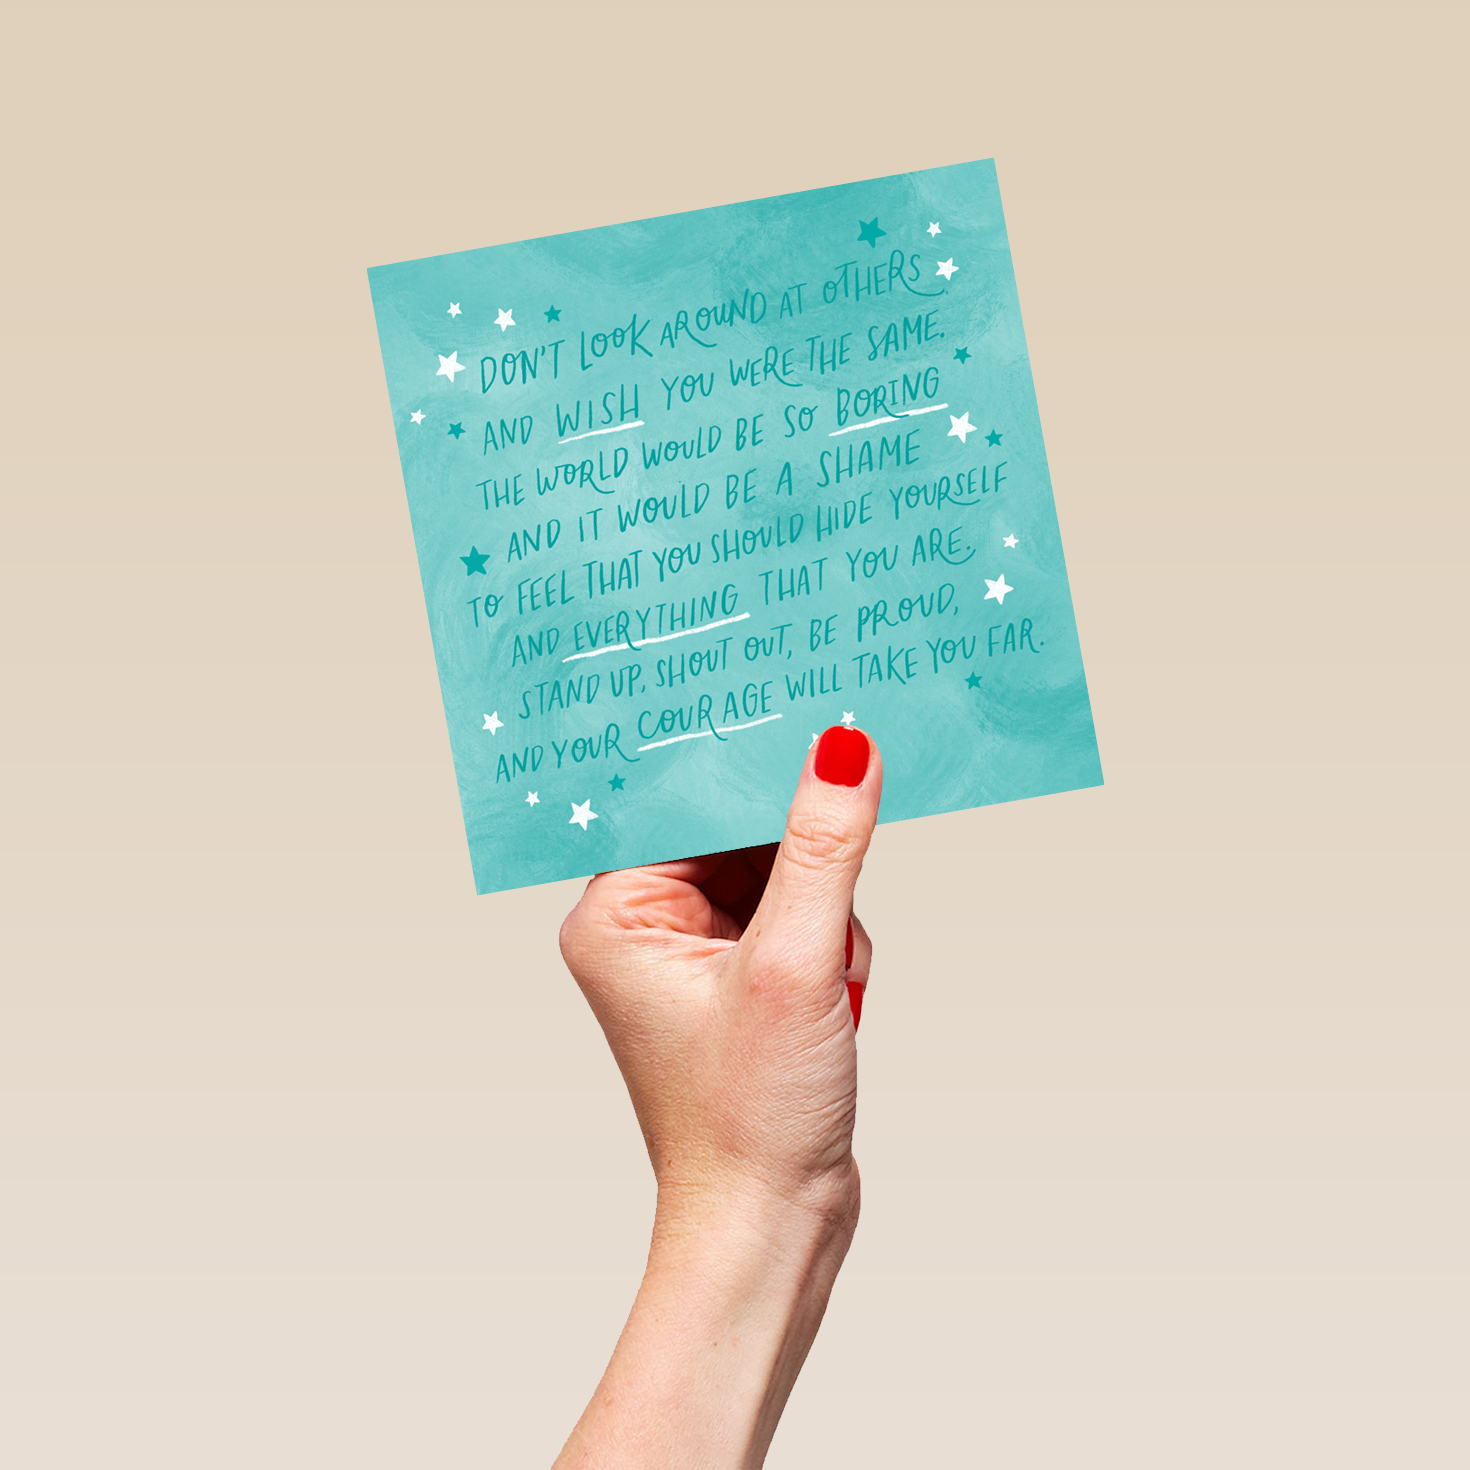 DON'T LOOK AROUND AT OTHERS
AND WISH YOU WERE THE SAME.
THE WORLD WOULD BE SO BORING
AND IT WOULD BE A SHAME
TO FEEL THAT YOU SHOULD HIDE YOURSELF
AND EVERYTHING THAT YOU ARE.
STAND UP, SHOUT OUT, BE PROUD,
AND YOUR COURAGE WILL TAKE YOU FAR.